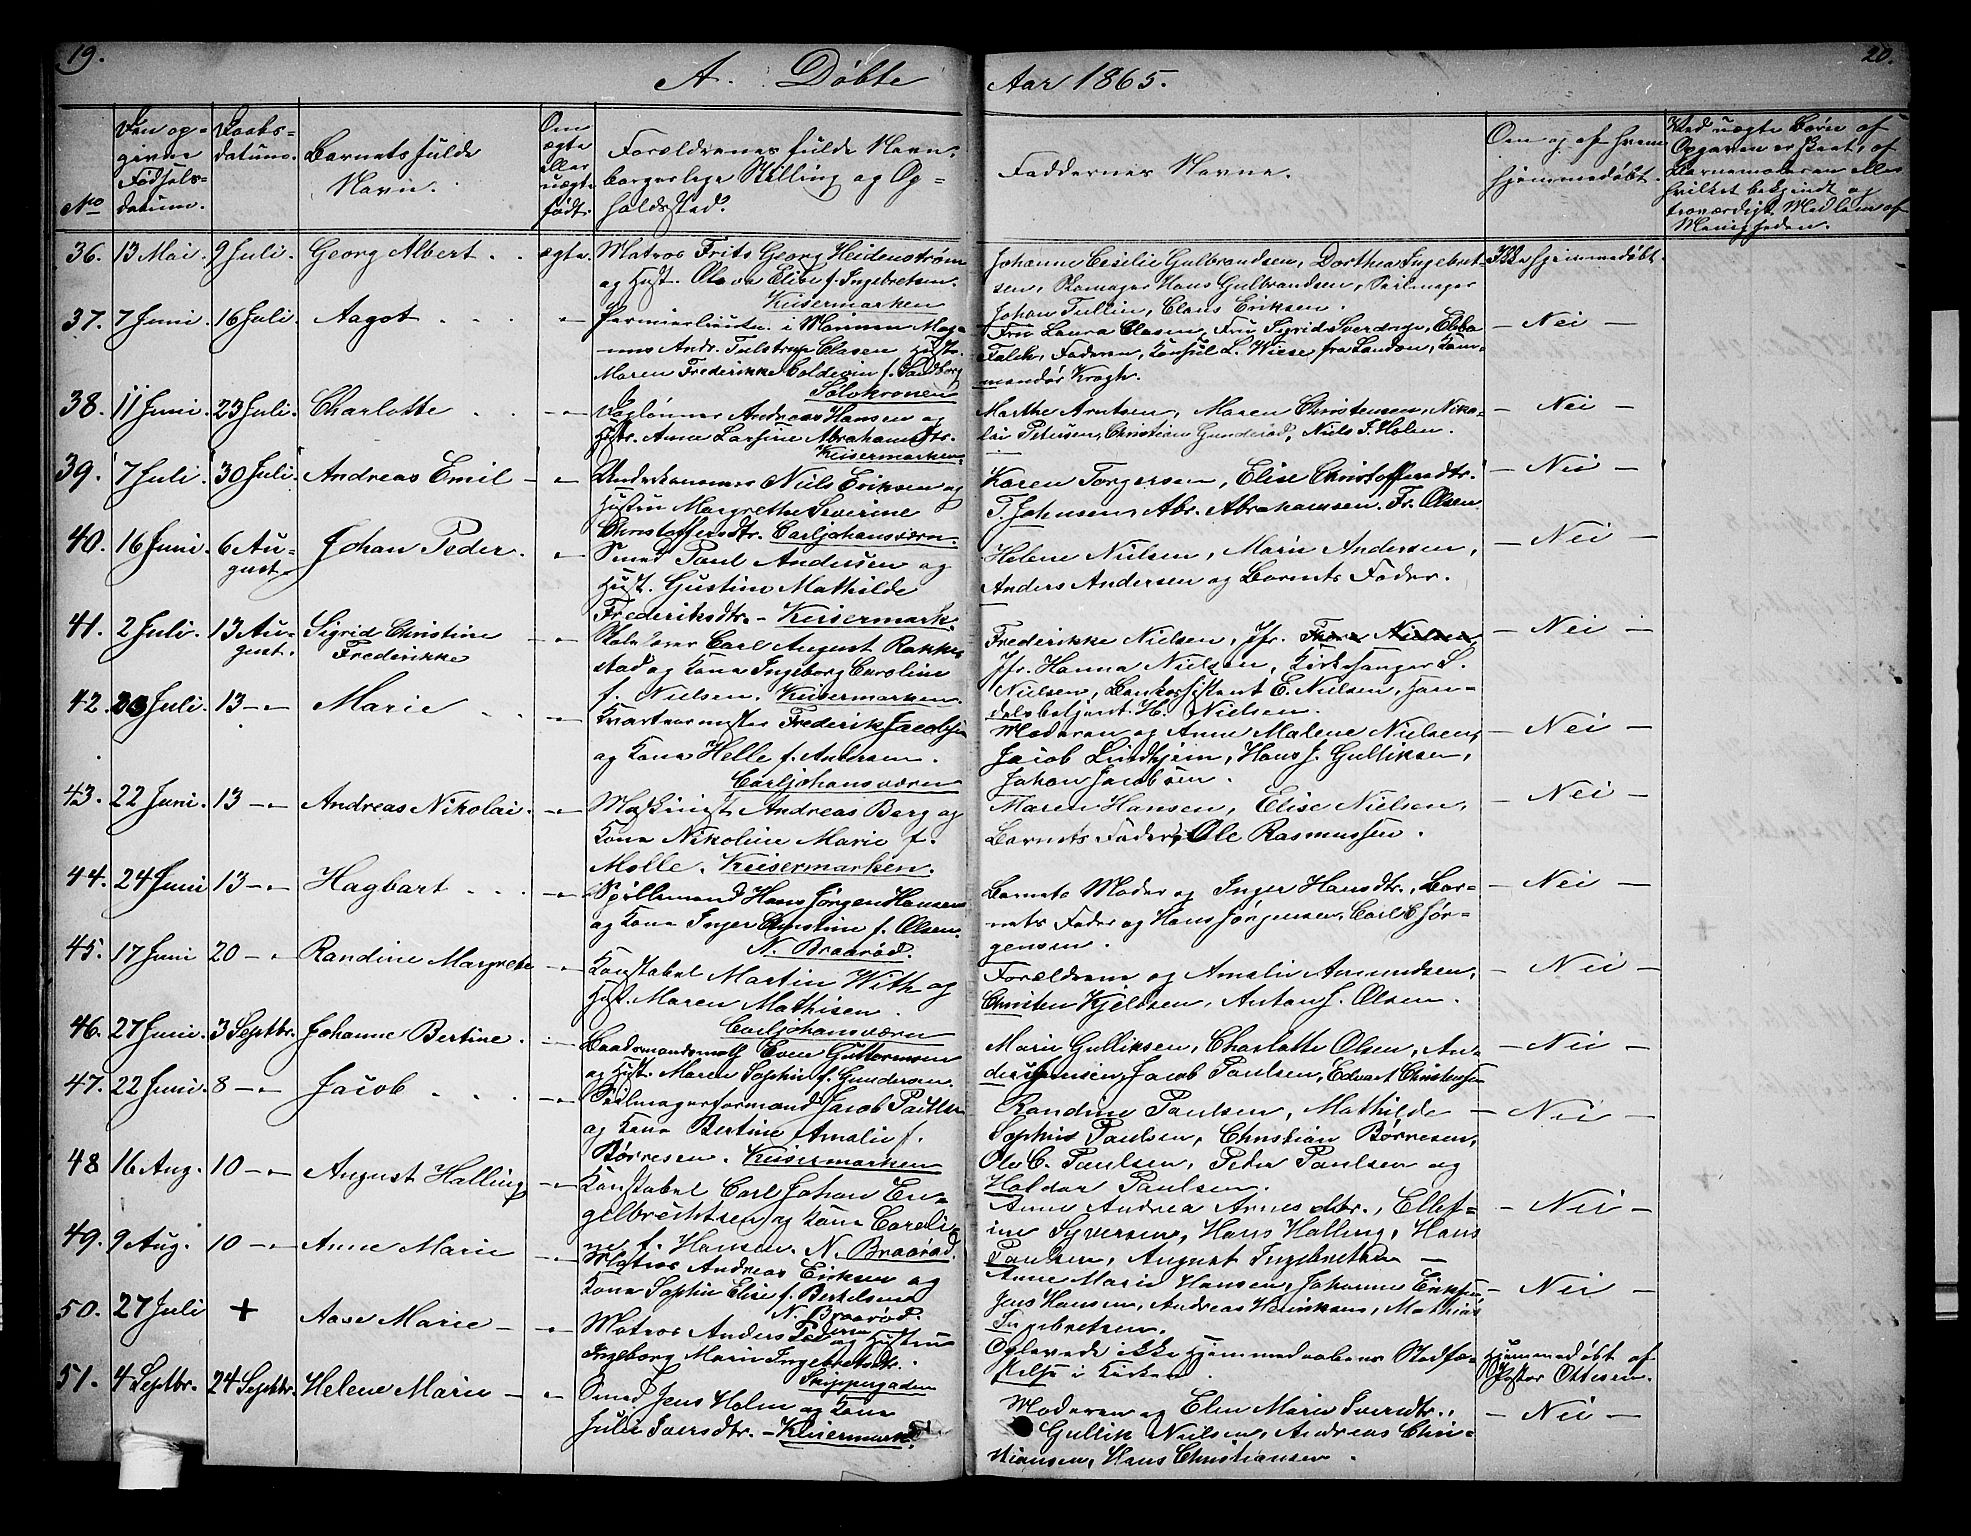 19.
A. Døbte
Aar 1865.
20.
No
Den op-
givne
Fødsels-
datum.
Daabs-
datum.
Barnets fulde
Navn.
Om
ægte
eller
uægte
født.
Forældrenes fulde Navn,
borgerlige Stilling og Op-
holdssted.
Faddernes Navne.
Om og af hvem
hjemmedøbt.
Ved uægte Børn af
Opgaven er skeet, af
Barnemoderen eller
hvilket bekjendt og
troværdigt Medlem af
Menigheden.
36. 13 Mai. 9 Juli. Georg Albert. ægte.
Matros Frits Georg Heidenstrøm
og Hust. Olava Elise f. Ingebretsen.
Keisermarken
Johanne Cesilie Gulbrandsen, Dorthea Ingebret-
sen, Hans Gulbrandsen, Seilmager
Johan Tullin, Claus Eriksen.
Ikke hjemmedøbt.
37. 7 Juni. 16 Juli. Aagot -"-
Permierlieutn. i Marinen Mag-
nus Andr. Tulstrup Clasen Hustr.
Maren Frederikke Coldevin f. Sandberg
Solokronen
Fru Laura Clasen, Fru Sigrid Sverdrup, Ebba
Falch, Faderen, Konsul L. Wiese fra London, Kom-
mandør Krogh.
- Nei -
38. 11 Juni. 23 Juli. Charlotte -"-
Daglønner Andreas Hansen og
Hstr. Anne Larsine Abrahamsdtr.
Keisermarken
Marthe Arntsen, Maren Christensen, Niko-
lai Petersen, Christian Gunderød, Niels T. Holm.
- Nei -
39. 7 Juli. 30 Juli. Andreas Emil -"-
Underkanoner Niels Eriksen og
Hustru Margrethe Severine
Christoffersdtr. Carljohansværn.
Karen Torgersen, Elise Christoffersdtr.
T. Johnsen, Abr. Abrahamsen. Fr. Olsen
- Nei -
40. 16 Juni. 6 Au-
gust. Johan Peder. -"-
Smed Paul Andersen og
Hust. Gustine Mathilde
Frederiksdtr. - Keisermark.
Helene Nielsen, Marie Andersen,
Anders Andersen og Barnets Fader.
- Nei -
41. 2 Juli. 13 Au-
gust. Sigrid Christine
Frederikke -"-
Carl August Rakke-
stad og Kone Ingeborg Caroline
f. Nielsen. Keisermarken.
Frederikke Nielsen, Jfr. Thora Nielsen,
Jfr. Hanna Nielsen, Kirkesanger L.
Nielsen, Bankassistent E. Nielsen, Han-
delsbetjent H. Nielsen.
- Nei -
42. 23 Juli. 13 -"- Marie -"-
Kvarteermester Frederik Jacobsen
og Kone Helle f. Andersen.
Carljohansværn
Moderen og Anne Malene Nielsen,
Jacob Lindhjem, Hans J. Gulliksen,
Johan Jacobsen.
- Nei -
43. 22 Juni. 13 -"- Andreas Nikolai. -"-
Maskinist Andreas Berg og
Kone Nikoline Marie f.
Molle. Keisermarken.
Maren Hansen, Elise Nielsen,
Barnets Fader, Ole Rasmussen.
- Nei -
44. 24 Juni 13 -"- Hagbart -"-
Spillemand Hans Jørgen Hansen
og Kone Inger Christine f. Olsen.
N. Braarød.
Barnets Moder og Inger Hansdtr., Bar-
nets Fader og Hans Jørgensen, Carl Jør-
gensen.
- Nei -
45. 17 Juni 20 -"- Randine Margrete -"-
Konstabel Martin With og
Hust. Maren Mathisen.
Carljohansværn
Forældrene og Amalie Amundsen,
Christen Kjeldsen, Anton J. Olsen.
- Nei -
46. 27 Juni. 3 Septbr. Johanne Bertine. -"-
Baadsmandsmath Even Guttormsen
og Hust. Maren Sophie f. Gundersen.
Marie Gulliksen, Charlotte Olsen, An-
ders Jensen, Jacob Paulsen, Edvart Christensen
- Nei -
47. 22 Juni. 8 -"- Jacob -"-
Seilmagerformand Jacob Paulsen
og Kone Bertine Amalie f.
Børresen. Keisermarken
Randine Paulsen, Mathilde
Sophie Paulsen, Christian Børresen,
Ole C. Paulsen, Peder Paulsen og
Haldor Paulsen.
- Nei -
48 16 Aug. 10 -"- August Halling -"-
Konstabel Carl Johan En-
gelbrechtsen og Kone Caroli-
ne f. Hansen. N. Braarød.
Anne Andrea Arnesdtr., Ellef-
ine Syversen, Hans Halling, Hans
Paulsen, August Ingebretsen -
- Nei -
49. 9 Aug. 10 -"- Anne Marie -"-
Matros Andreas Eriksen og
Kone Sophie Elise f. Bertelsen
N. Braarød.
Anne Marie Hansen, Johannes Eriksen,
Jens Hansen, Andreas Henriksen, Mathias
Ingebretsen.
- Nei -
50. 27 Juli + Aase Marie -"-
Matros Anders Pedersen og Hustru
Ingeborg Marie Ingebretsdtr.
Skippergaden
Oplevede ikke Hjemmedaabens Stadfæ-
stelse i Kirken.
Hjemmedøbt af
Pastor Ottesen.
51. 4 Septbr. 24 Septbr. Helene Marie -"-
Smed Jens Holm og Kone
Julie Iversdtr. - Keisermark.
Moderen og Elen Marie Iversdtr.,
Gullik Nielsen, Andreas Chri-
stiansen, Hans Christiansen.
- Nei -
51.